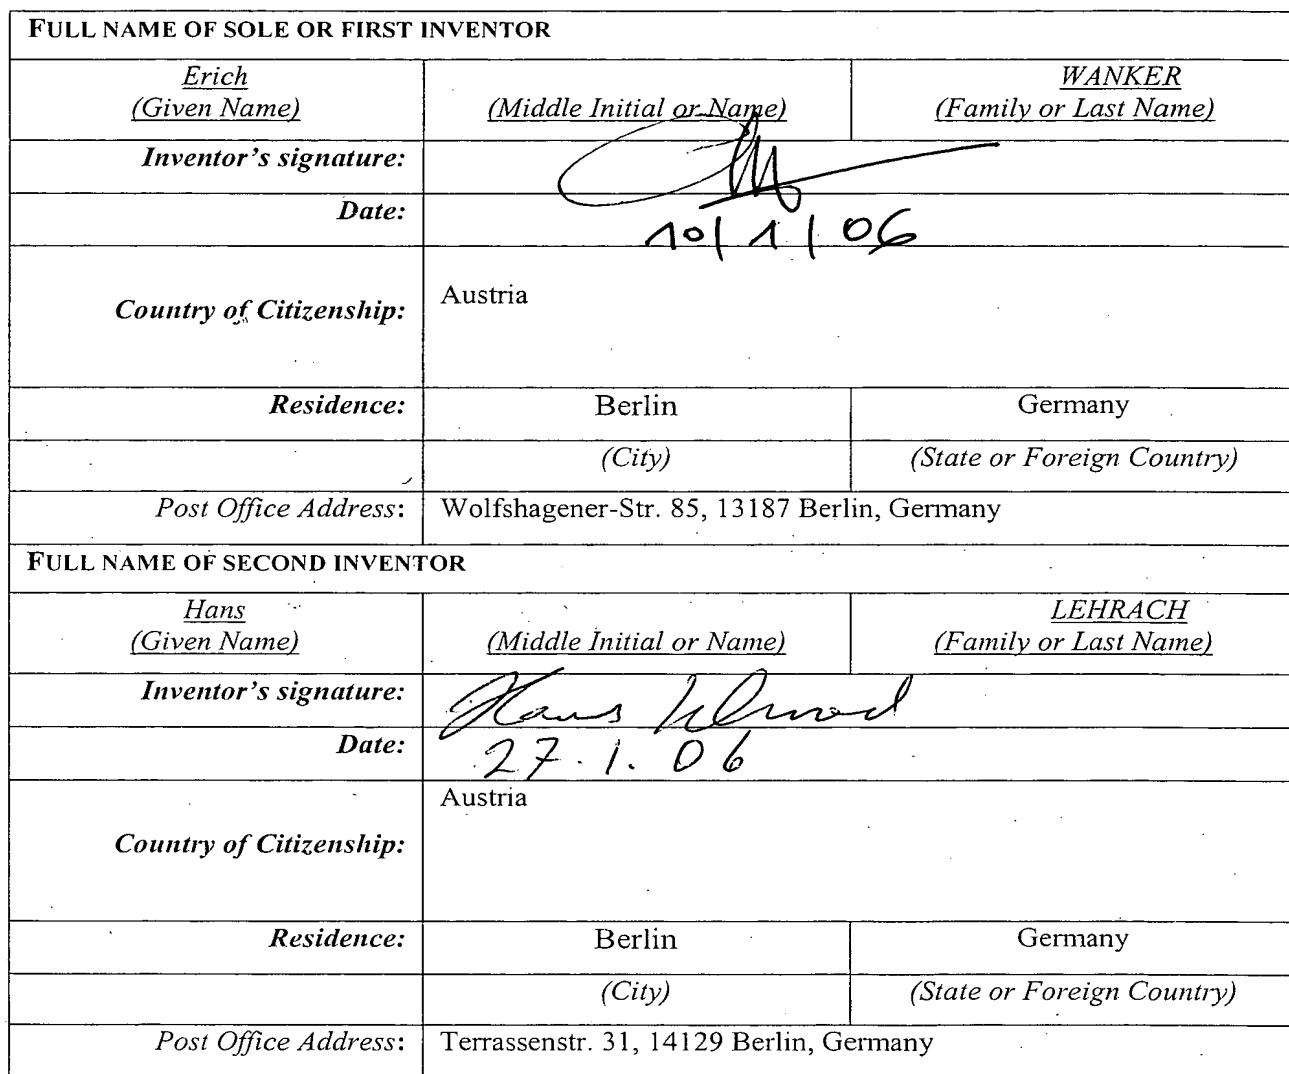 FULL NAME OF SOLE OR FIRST INVENTOR
Erich WANKER
(Given Name) (Middle Initial or Name) (Family or Last Name)
Inventor's signature:
Date: 10/1/06
Country of Citizenship: Austria
Residence: Berlin Germany
(City) (State or Foreign Country)
Post Office Address: Wolfshagener-Str. 85, 13187 Berlin, Germany
FULL NAME OF SECOND INVENTOR
Hans LEHRACH
(Given Name) (Middle Initial or Name) (Family or Last Name)
Inventor's signature: Hans Lehrach
Date: 27.1.06
Austria
Country of Citizenship:
Residence: Berlin Germany
(City) (State or Foreign Country)
Post Office Address: Terrassenstr. 31, 14129 Berlin, Germany